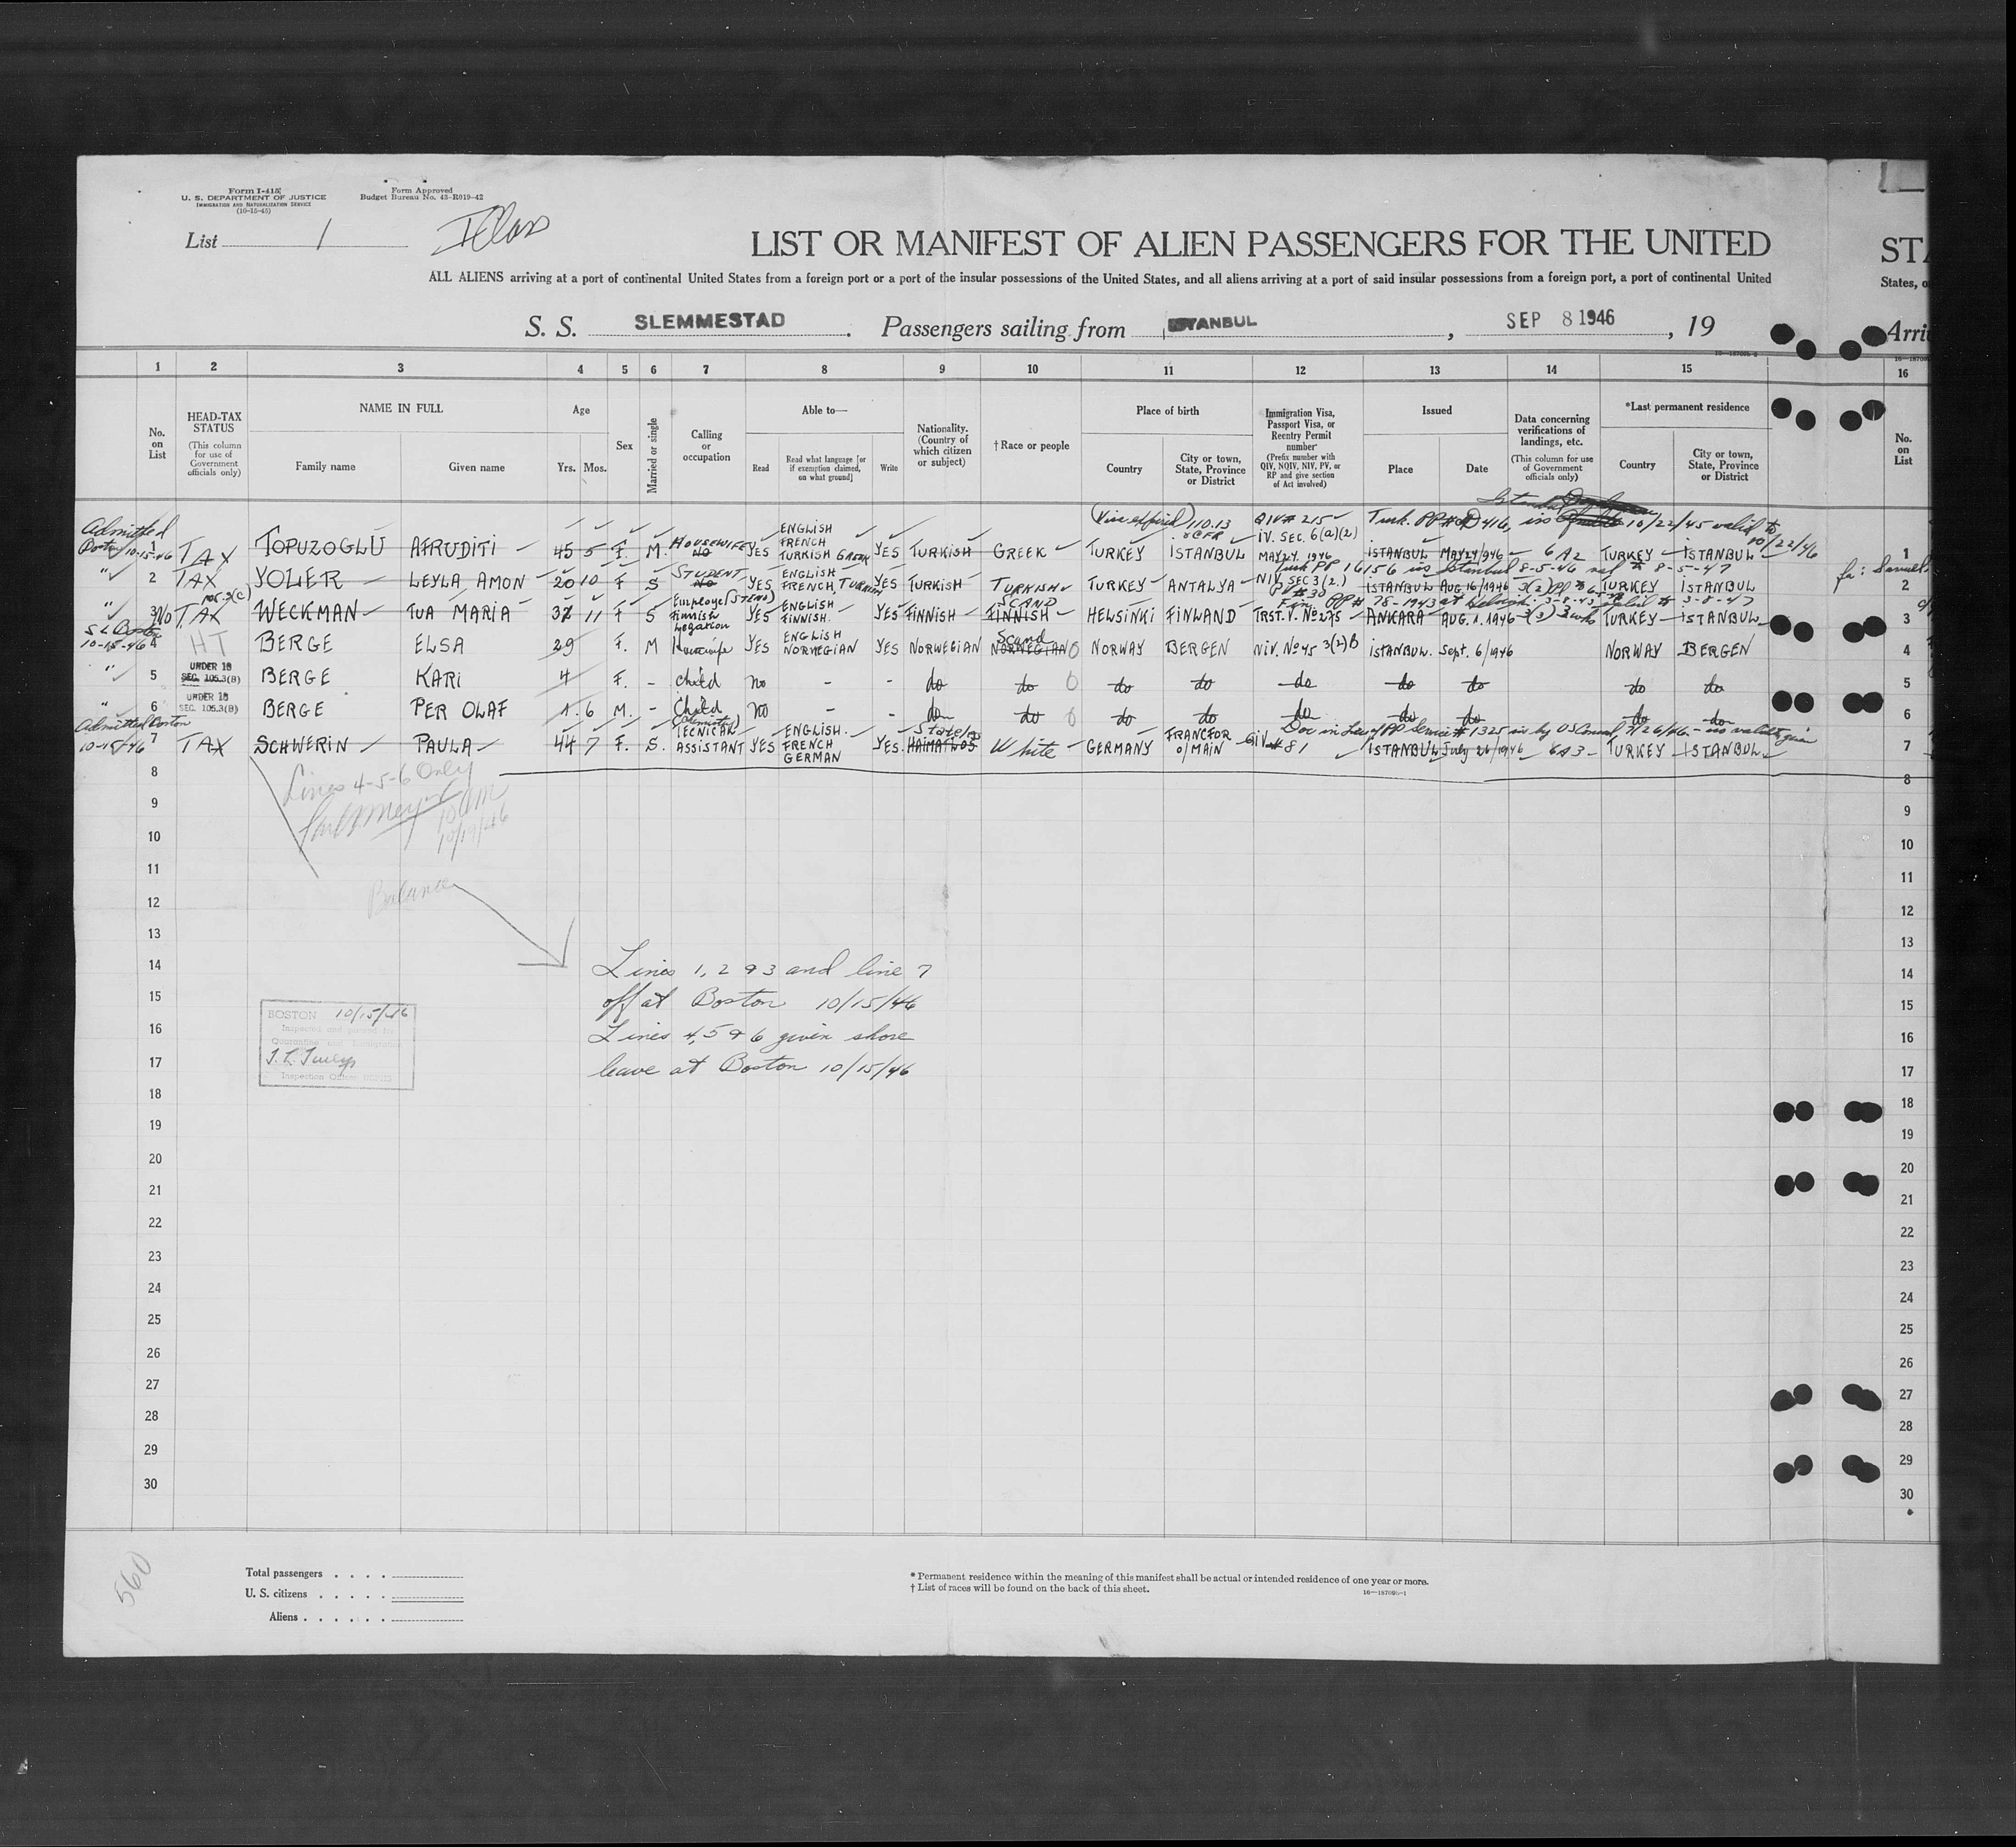 Form I-415
U. S. DEPARTMENT OF JUSTICE
IMMIGRATION AND NATURALIZATION SERVICE
(10-15-45)
Form Approved
Budget Bureau No. 43-R019-42
List 1
I Class
LIST OR MANIFEST OF ALIEN PASSENGERS FOR THE UNITED
ALL ALIENS arriving at a port of continental United States from a foreign port or a port of the insular possessions of the United States, and all aliens arriving at a port of said insular possessions from a foreign port, a port of continental United
States, o
S. S. SLEMMESTAD. Passengers sailing from ISTANBUL, SEP 8 1946, 19
Arri
1 2 3 4 5 6 7 8 9 10 11 12 13 14 15 16
No. on List
HEAD-TAX STATUS
(This column for use of Government officials only)
NAME IN FULL
Family name Given name
Age
Yrs. Mos.
Sex
Married or single
Calling or occupation
Able to—
Read
Read what language [or if exemption claimed, on what ground]
Write
Nationality. (Country of which citizen or subject)
† Race or people
Place of birth
Country
City or town, State, Province or District
Immigration Visa, Passport Visa, or Reentry Permit number
(Prefix number with QIV, NQIV, NIV, PV, or RP and give section of Act involved)
Issued
Place Date
Data concerning verifications of landings, etc.
(This column for use of Government officials only)
*Last permanent residence
Country
City or town, State, Province or District
No. on List
Admitted Boston 10-15-46
1 TAX TOPUZOGLU AFRUDITI 45 5 F. M. HOUSEWIFE NO YES ENGLISH FRENCH TURKISH GREEK YES TURKISH GREEK TURKEY ISTANBUL QIV # 215 IV. SEC. 6(a)(2) MAY 24. 1946 ISTANBUL MAY 24/1946 6A2 TURKEY ISTANBUL 1
(Visa expired) 110.13
10/22/45 valid to 10/22/46
" 2 TAX YOLER LEYLA AMON 20 10 F S STUDENT NO YES ENGLISH FRENCH, TURKISH YES TURKISH TURKISH TURKEY ANTALYA NIV. SEC 3(2.) ISTANBUL AUG. 16/1946 3(2) TURKEY ISTANBUL 2
Turk PP 16156 iss Istanbul 8-5-46 val to 8-5-47
fa: Samuel
" 3 No TAX WECKMAN TUA MARIA 37 11 F S Employe (STENO) Finnish Legation YES ENGLISH FINNISH. YES FINNISH SCAND FINNISH HELSINKI FINLAND TRST. V. No 275 ANKARA AUG. 1. 1946 TURKEY ISTANBUL 3
S L Boston 10-15-46
4 HT BERGE ELSA 29 F. M Housewife YES ENGLISH NORWEGIAN YES NORWEGIAN Scand NORWEGIAN NORWAY BERGEN NIV. No 45 3(2)B ISTANBUL. Sept. 6/1946 NORWAY BERGEN 4
" 5 UNDER 18 SEC. 105.3(B) BERGE KARI 4 F. - child no - - do do do do do do do do do 5
" 6 UNDER 18 SEC. 105.3(B) BERGE PER OLAF 1. 6 M. - Child no - - do do do do do do do do do 6
Admitted Boston 10-15-46
7 TAX SCHWERIN PAULA 44 7 F. S. TECNICAL ASSISTANT YES ENGLISH. FRENCH GERMAN YES. Stateless HAIMATLOS White GERMANY FRANCFOR o/MAIN # 81 ISTANBUL July 26/1946 6A3 TURKEY ISTANBUL 7
8 8
Lines 4-5-6 Only
10/19/46
9 9
10 10
11 11
Balance
12 12
13 13
14 Lines 1, 2 & 3 and line 7 14
15 off at Boston 10/15/46 15
16 Lines 4, 5 & 6 given shore 16
17 leave at Boston 10/15/46 17
BOSTON 10/15/46
Inspected and passed for
Quarantine and Immigration
18 18
19 19
20 20
21 21
22 22
23 23
24 24
25 25
26 26
27 27
28 28
29 29
30 30
560
Total passengers
U. S. citizens
Aliens
* Permanent residence within the meaning of this manifest shall be actual or intended residence of one year or more.
† List of races will be found on the back of this sheet.